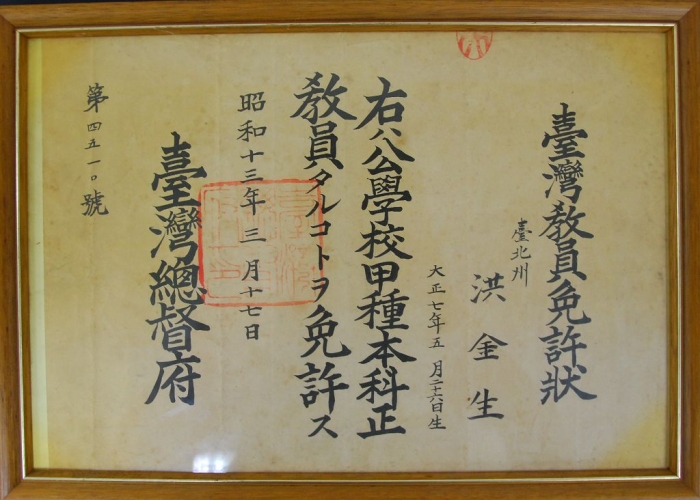 臺灣敎員免許狀
臺北州
洪金生
大正七年五月二十六日生
右ハ公學校甲種本科正
敎員タルコトヲ免許ス
昭和十三年三月十七日
臺灣總督府
第四五一〇號